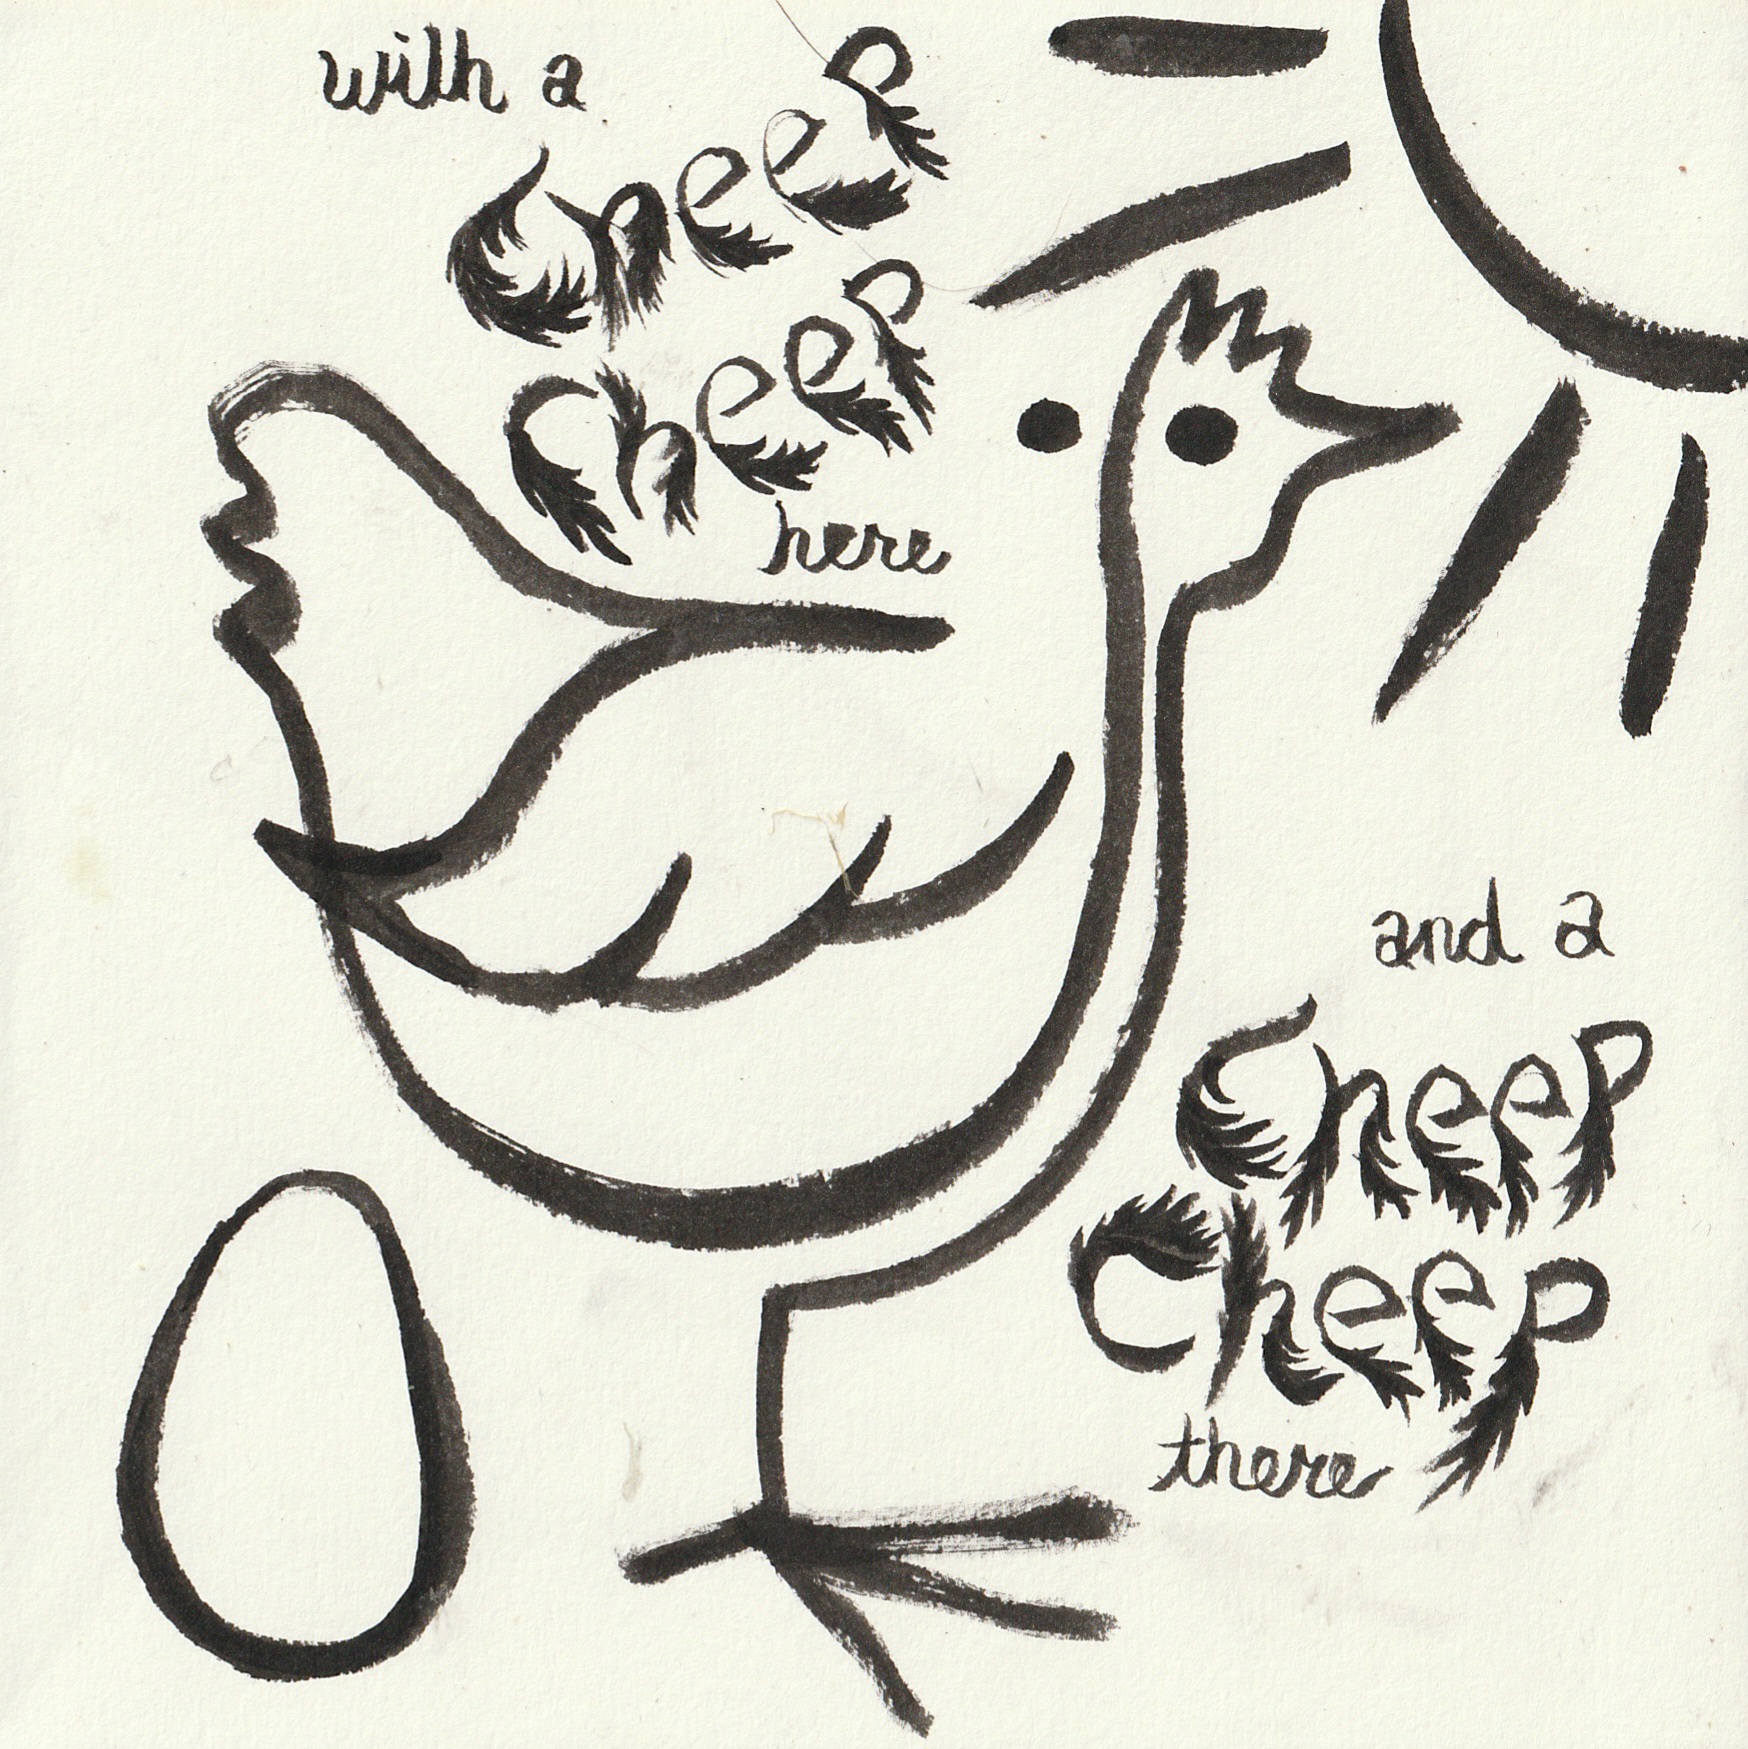 with a
Cheep
Cheep
here
and a
Cheep
Cheep
there